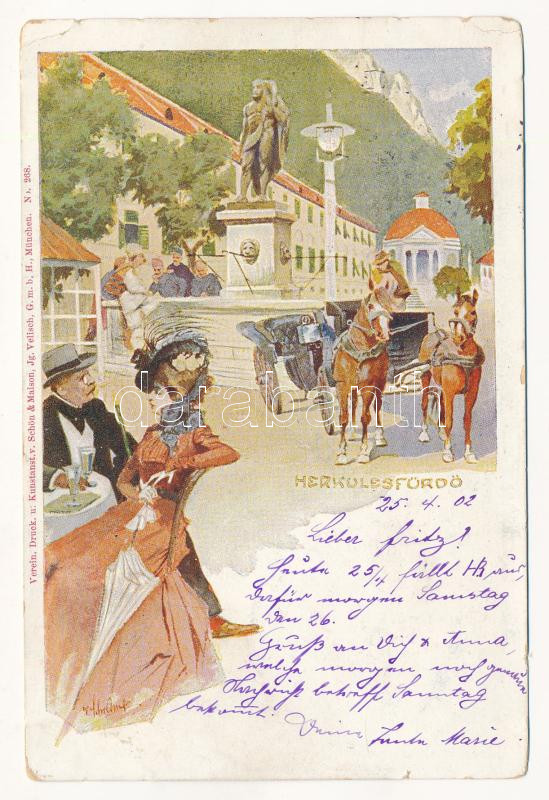 Verein. Druck. u. Kunstanst. v. Schön & Maison, Jg. Velisch, G. m. b. H., München. No. 268.
darabanth
HERKULESFÜRDŐ
25. 4. 02
Lieber Fritz!
Heute 25/4 fällt aus,
dafür morgen Samstag
den 26.
Gruß an Dich & Anna,
welche morgen noch
Nachricht betreff Samstag
bekommt. Deine Tante Marie.